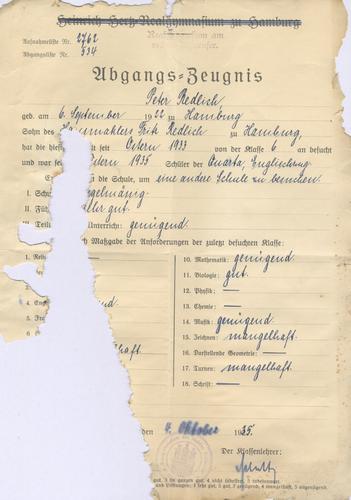 Heinrich Hertz-Realgymnasium zu Hamburg
Realgymnasium am
Aufnahmeliste Nr. 2762
Abgangsliste Nr. 534
Abgangs-Zeugnis
Peter Redlich
geb. am 6. September 1922 zu Hamburg
Sohn des Fritz Redlich zu Hamburg,
hat die Ostern 1933 von der Klasse 6 an besucht
und war se Ostern 1935 Schüler der Quarta, Englischzug
die Schule, um eine andere Schule zu besuchen.
I. Schu gelmäßig
II. Füh sehr gut.
III. Teiln Unterricht: genügend.
ch Maßgabe der Anforderungen der zuletzt besuchten Klasse:
1. Reli
4. Engl nd
5. Fra
haft
10. Mathematik: genügend
11. Biologie: gut
12. Physik: —
13. Chemie: —
14. Musik: genügend
15. Zeichnen: mangelhaft
16. Darstellende Geometrie: —
17. Turnen: mangelhaft
18. Schrift: —
den 4. Oktober 1935.
Der Klassenlehrer:
gut, 3 im ganzen gut, 4 nicht
1 sehr gut, 2 gut, 3 genügend, 4 mangelhaft, 5 ungenügend.